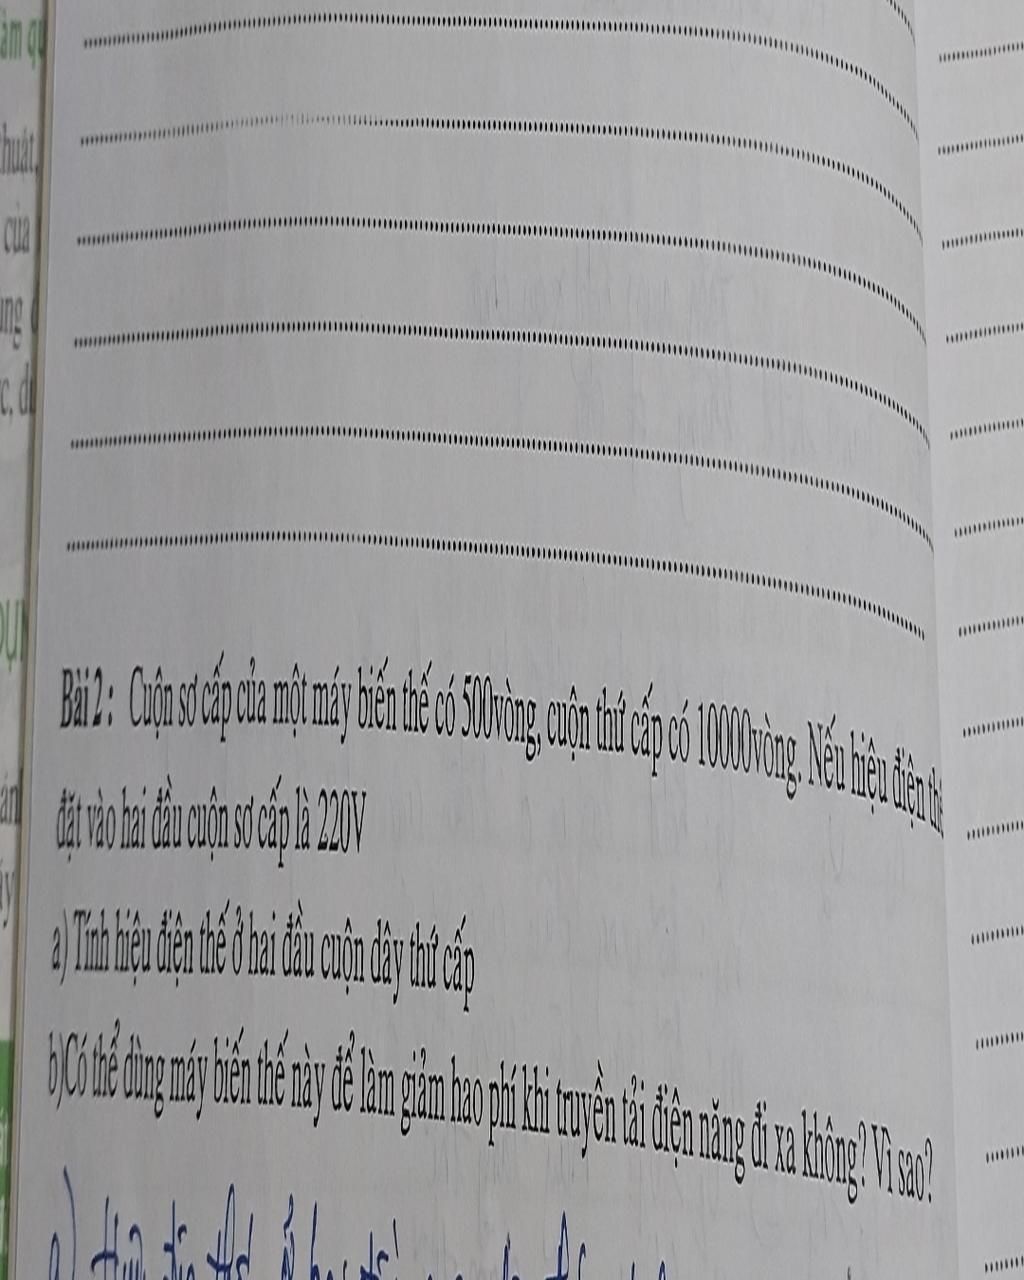 Bài 2 : Cuộn sơ cấp của một máy biến thế có 500vòng, cuộn thứ cấp có 10000vòng. Nếu hiệu điện thế
đặt vào hai đầu cuộn sơ cấp là 220V
a) Tính hiệu điện thế ở hai đầu cuộn dây thứ cấp
b)Có thể dùng máy biến thế này để làm giảm hao phí khi truyền tải điện năng đi xa không? Vì sao?
a)